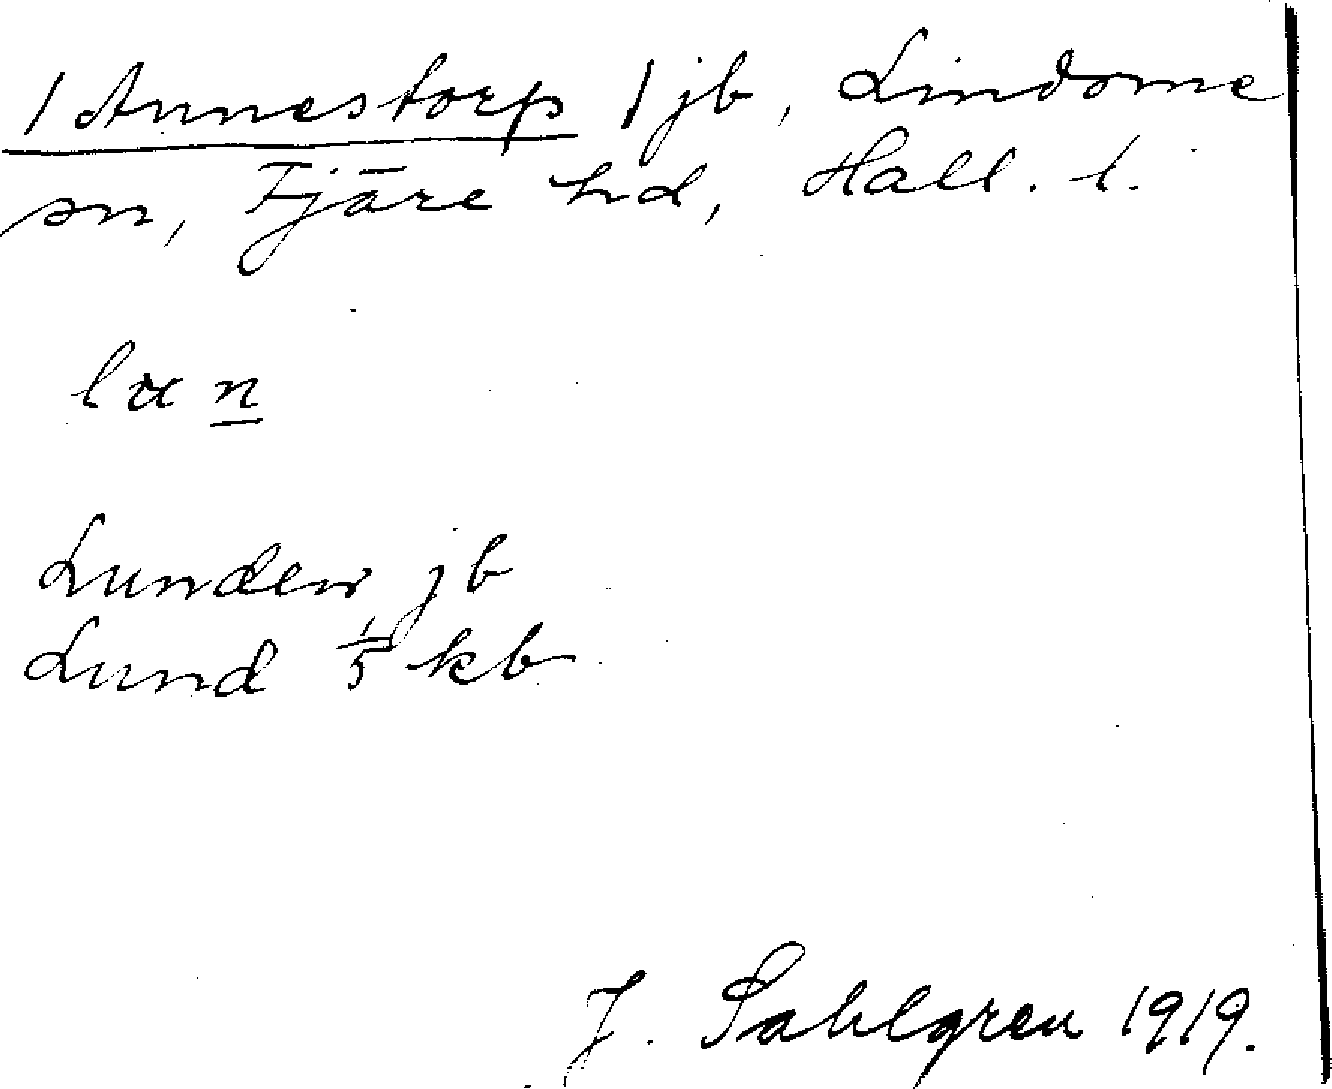 / Annestorp / jb, Lindome
sn, Fjäre hd, Hall. l.
lα n
Lunden jb
Lund 1/5 kb
J. Sahlgren 1919.